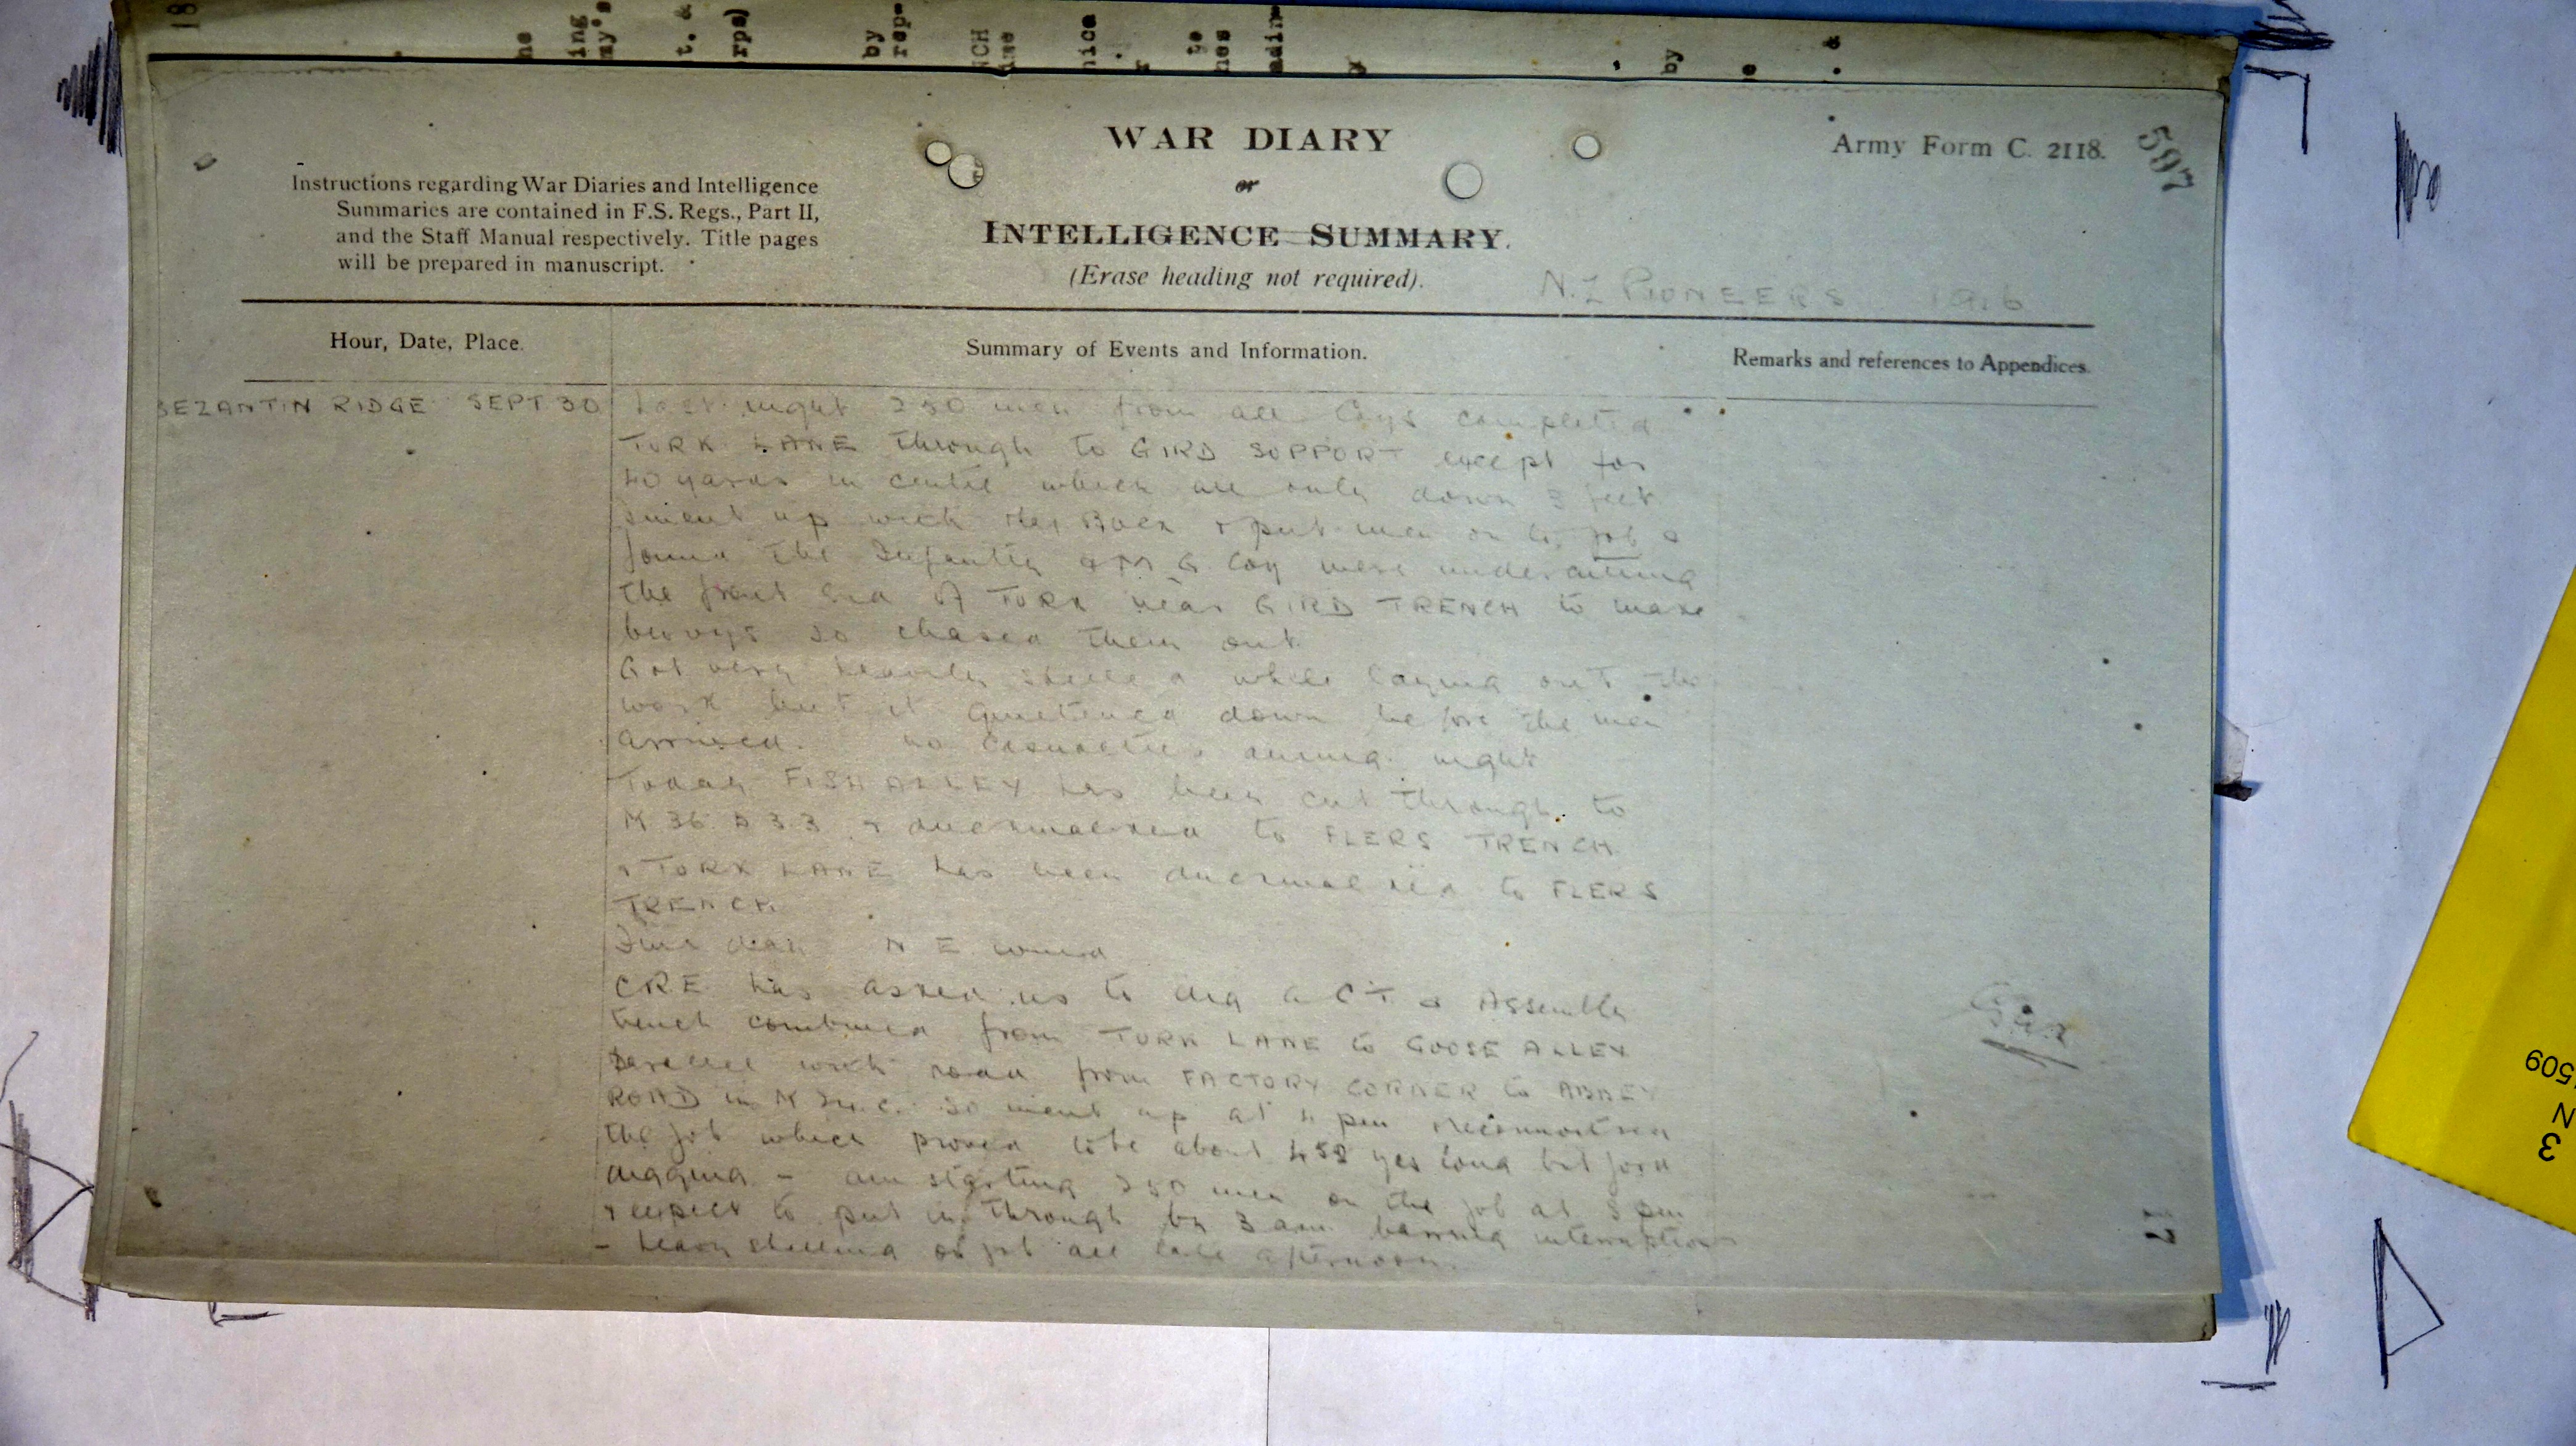 WAR DIARY
or
INTELLIGENCE SUMMARY.
(Erase heading not required).
Army Form C. 2118.
597
Instructions regarding War Diaries and Intelligence
Summaries are contained in F.S. Regs., Part II,
and the Staff Manual respectively. Title pages
will be prepared in manuscript.
N.Z PIONEERS 1916
Hour, Date, Place.
Summary of Events and Information.
Remarks and references to Appendices.
BEZANTIN RIDGE SEPT 30
Last night 250 men from all Coys completed
TURK LANE through to GIRD SUPPORT except for
40 yards in centre which are only down 3 feet
went up with & put men on to job &
found the Infantry & M G Coy were undercutting
the front end of TURK near GIRD TRENCH to make
bivvys so chased them out
Got very heavily shelled while laying out the
work but it quietened down before the men
arrived. No casualties during night
Today FISH ALLEY has been cut through to
M 36 & duckwalked to FLERS TRENCH
& TURK LANE has been duckwalked to FLERS
TRENCH
Fine day N E wind
CRE has asked us to dig a C T & Assembly
trench combined from TURK LANE to GOOSE ALLEY
parallel with road from FACTORY CORNER to ABBEY
ROAD in M 24. c. So went up at 4 pm reconnoitred
the job which proved to be about 450 yds long but good
digging - am starting 250 men on the job at 8 pm
& expect to put it through by 3 am barring interruptions
- heavy shelling of job all late afternoon.
17
509
N
3
18
by
rep-